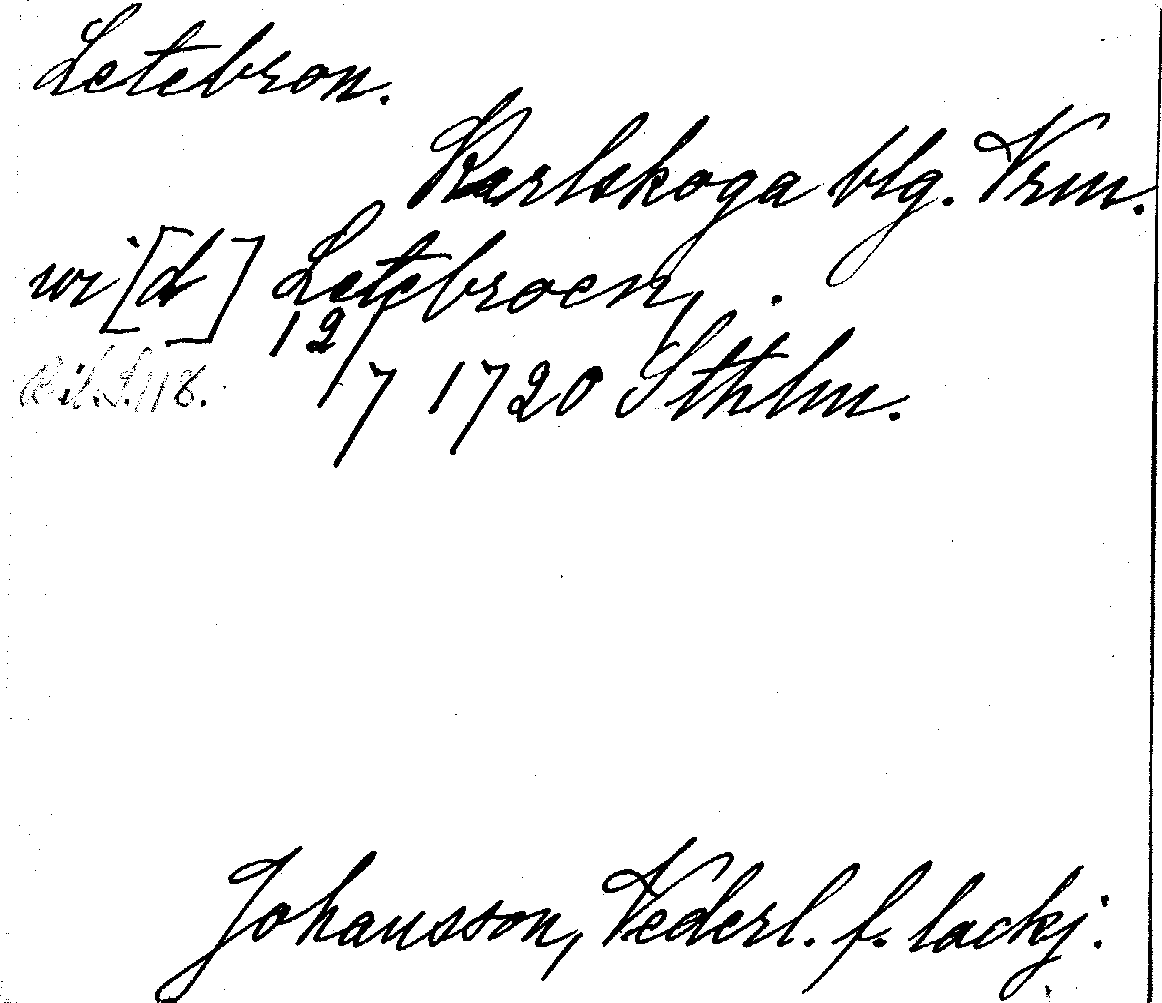 Letebron.
Karlskoga blg. Vrm.
wi[d] Letebroen,
12/7 1720 Sthlm.
Johansson, Vederl. f. lackj.